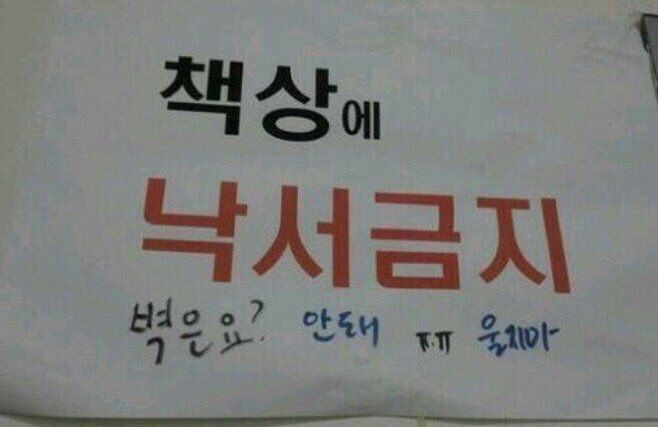 책상에
낙서금지
벽은요? 안돼 ㅠ.ㅠ 울지마